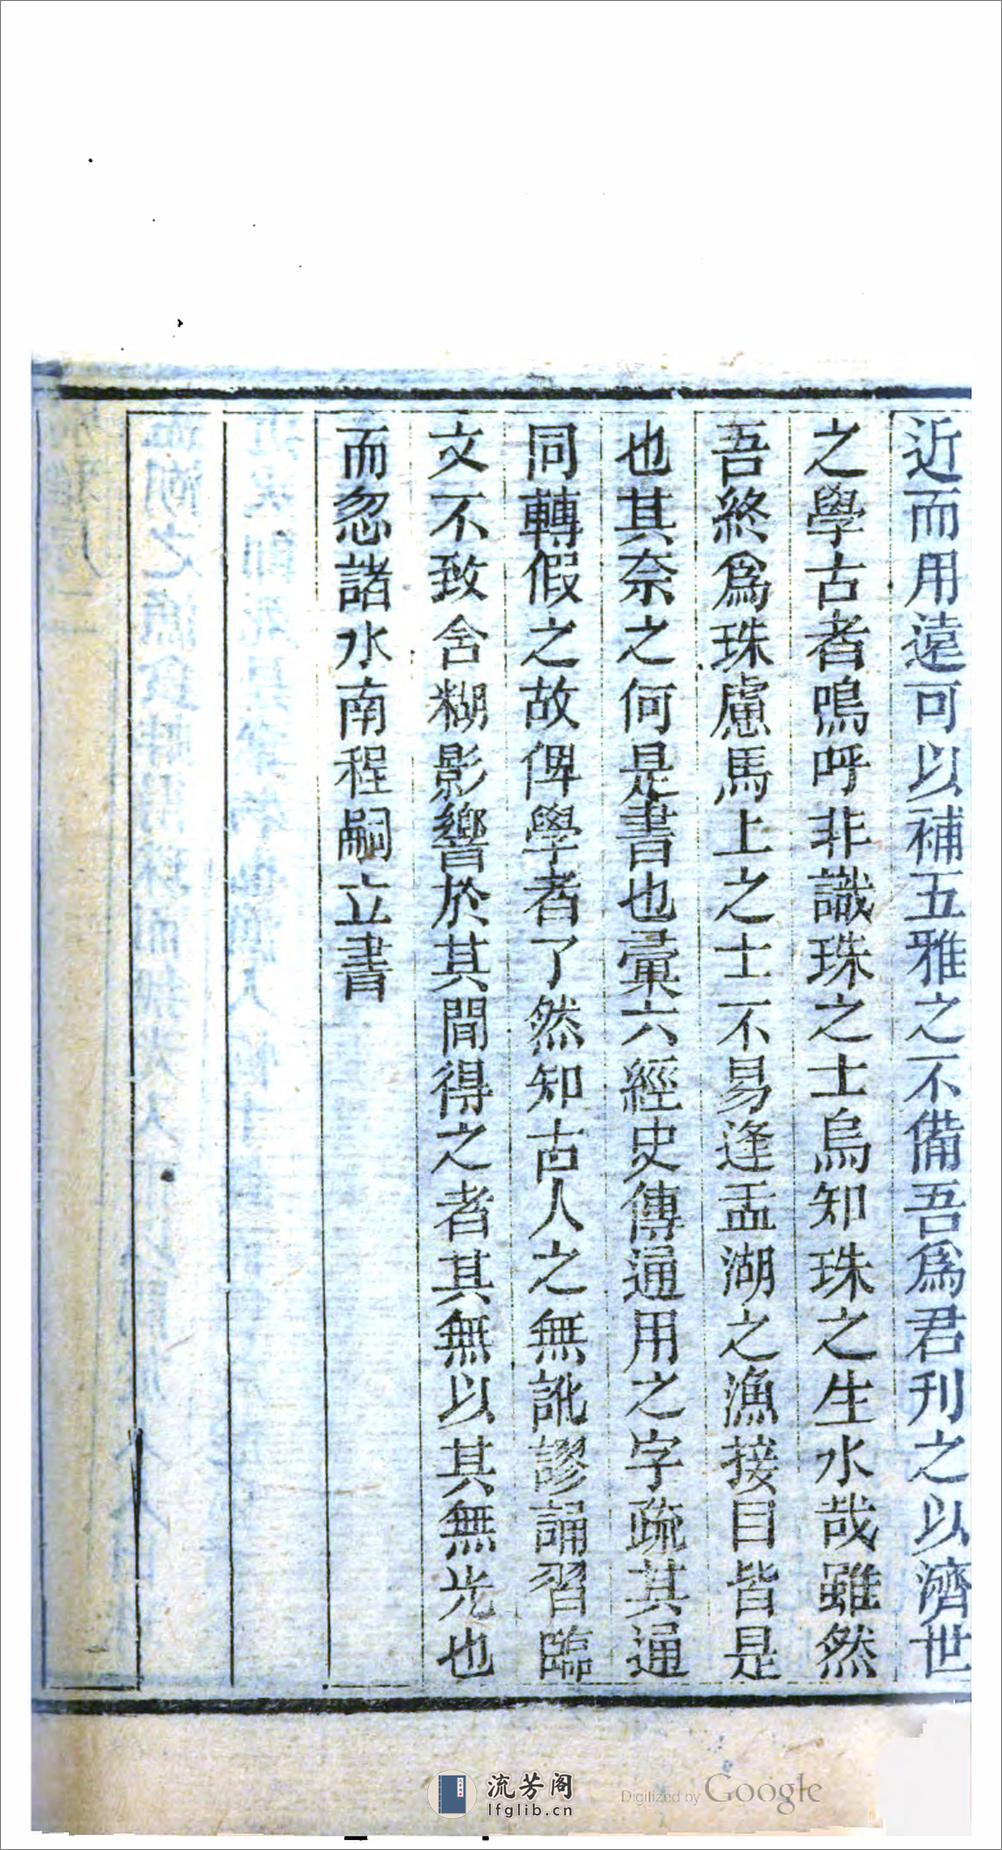 近而用遠可以補五雅之不備吾爲君刋之以濟世
之學古者嗚呼非識珠之士烏知珠之生水哉雖然
吾終爲珠慮馬上之士不易逢盂湖之漁接目皆是
也其奈之何是書也彚六經史傳通用之字疏其通
同轉假之故俾學者了然知古人之無訛謬誦習臨
文不致含糊影響於其間得之者其無以其無光也
而忽諸水南程嗣立書
流芳阁
lfglib.cn
Digitized by Google